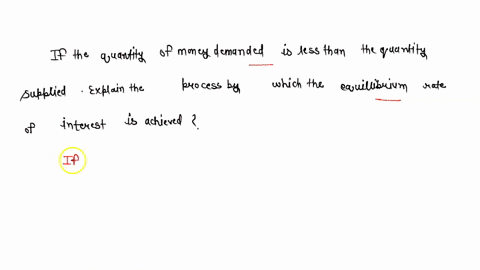 If the quantity of money demanded is less than the quantity
supplied. Explain the process by which the equillibrium rate
of interest is achieved ?
If